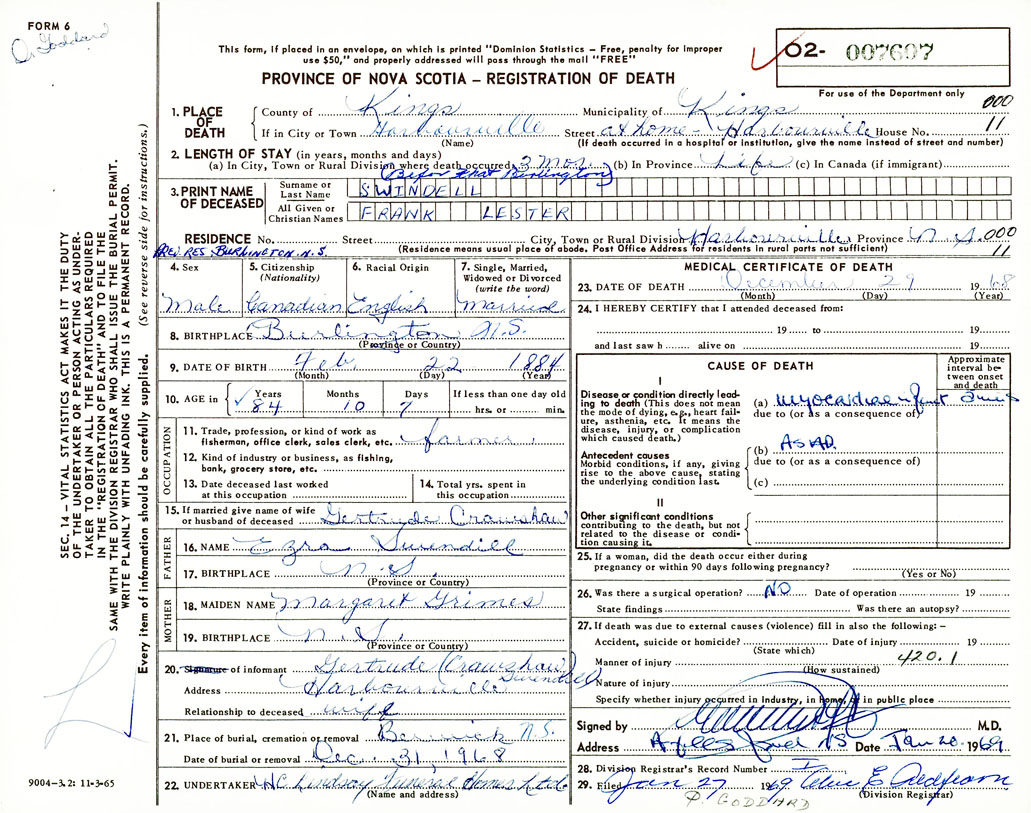 FORM 6
D. Goddard
This form, if placed in an envelope, on which is printed "Dominion Statistics – Free, penalty for improper
use $50," and properly addressed will pass through the mail "FREE"
PROVINCE OF NOVA SCOTIA – REGISTRATION OF DEATH
02- 007607
For use of the Department only
000
11
1. PLACE OF DEATH
County of Kings Municipality of Kings
If in City or Town Harbourville Street at home - Harbourville House No.
(Name) (If death occurred in a hospital or institution, give the name instead of street and number)
2. LENGTH OF STAY (in years, months and days)
(a) In City, Town or Rural Division where death occurred 3 mos. (b) In Province Life (c) In Canada (if immigrant)
(Befor that Burlington)
3. PRINT NAME OF DECEASED
Surname or Last Name SWINDELL
All Given or Christian Names FRANK LESTER
RESIDENCE No. Street City, Town or Rural Division Harbourville Province N S 000
11
PREV. RES. BURLINGTON N.S. (Residence means usual place of abode. Post Office Address for residents in rural parts not sufficient)
4. Sex Male
5. Citizenship (Nationality) Canadian
6. Racial Origin English
7. Single, Married, Widowed or Divorced (write the word) Married
8. BIRTHPLACE Burlington N.S.
(Province or Country)
9. DATE OF BIRTH Feb. 22 1884
(Month) (Day) (Year)
10. AGE in Years 84 Months 10 Days 7 If less than one day old hrs. or min.
OCCUPATION
11. Trade, profession, or kind of work as fisherman, office clerk, sales clerk, etc. farmer
12. Kind of industry or business, as fishing, bank, grocery store, etc.
13. Date deceased last worked at this occupation
14. Total yrs. spent in this occupation
15. If married give name of wife or husband of deceased Gertrude Crawshaw
FATHER
16. NAME Ezra Swindell
17. BIRTHPLACE N.S.
(Province or Country)
MOTHER
18. MAIDEN NAME Margaret Grimes
19. BIRTHPLACE N.S.
(Province or Country)
20. Signature of informant Gertrude (Crawshaw) Swindell
Address Harbourville
Relationship to deceased wife
21. Place of burial, cremation or removal Berwick N.S.
Date of burial or removal Dec. 31, 1968
22. UNDERTAKER W C Lindsay Funeral Homes Ltd.
(Name and address)
MEDICAL CERTIFICATE OF DEATH
23. DATE OF DEATH December 29 1968
(Month) (Day) (Year)
24. I HEREBY CERTIFY that I attended deceased from:
19 to 19
and last saw h alive on 19
CAUSE OF DEATH
Approximate interval between onset and death
I
Disease or condition directly leading to death (This does not mean the mode of dying, e.g., heart failure, asthenia, etc. It means the disease, injury, or complication which caused death.)
(a) Myocardial infarct
due to (or as a consequence of)
Antecedent causes
Morbid conditions, if any, giving rise to the above cause, stating the underlying condition last.
(b) ASHD
due to (or as a consequence of)
(c)
II
Other significant conditions
contributing to the death, but not related to the disease or condition causing it.
25. If a woman, did the death occur either during pregnancy or within 90 days following pregnancy?
(Yes or No)
26. Was there a surgical operation? NO Date of operation 19
State findings Was there an autopsy?
27. If death was due to external causes (violence) fill in also the following: –
Accident, suicide or homicide? Date of injury 19
(State which)
Manner of injury 420.1
(How sustained)
Nature of injury
Specify whether injury occurred in industry, in home, or in public place
Signed by M.D.
Address NS Date Jan 20 1969
28. Division Registrar's Record Number 1
29. Filed Jan 27 1969
(Division Registrar)
P. GODDARD
SEC. 14 – VITAL STATISTICS ACT MAKES IT THE DUTY
OF THE UNDERTAKER OR PERSON ACTING AS UNDER-
TAKER TO OBTAIN ALL THE PARTICULARS REQUIRED
IN THE "REGISTRATION OF DEATH" AND TO FILE THE
SAME WITH THE DIVISION REGISTRAR WHO SHALL ISSUE THE BURIAL PERMIT.
WRITE PLAINLY WITH UNFADING INK. THIS IS A PERMANENT RECORD.
Every item of information should be carefully supplied. (See reverse side for instructions.)
9004–3.2: 11-3-65